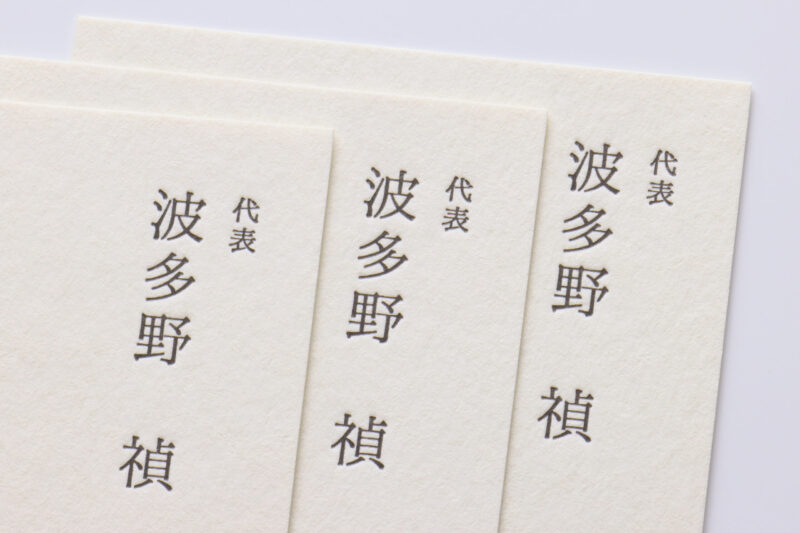 代表
波多野 禎
代表
波多野 禎
代表
波多野 禎